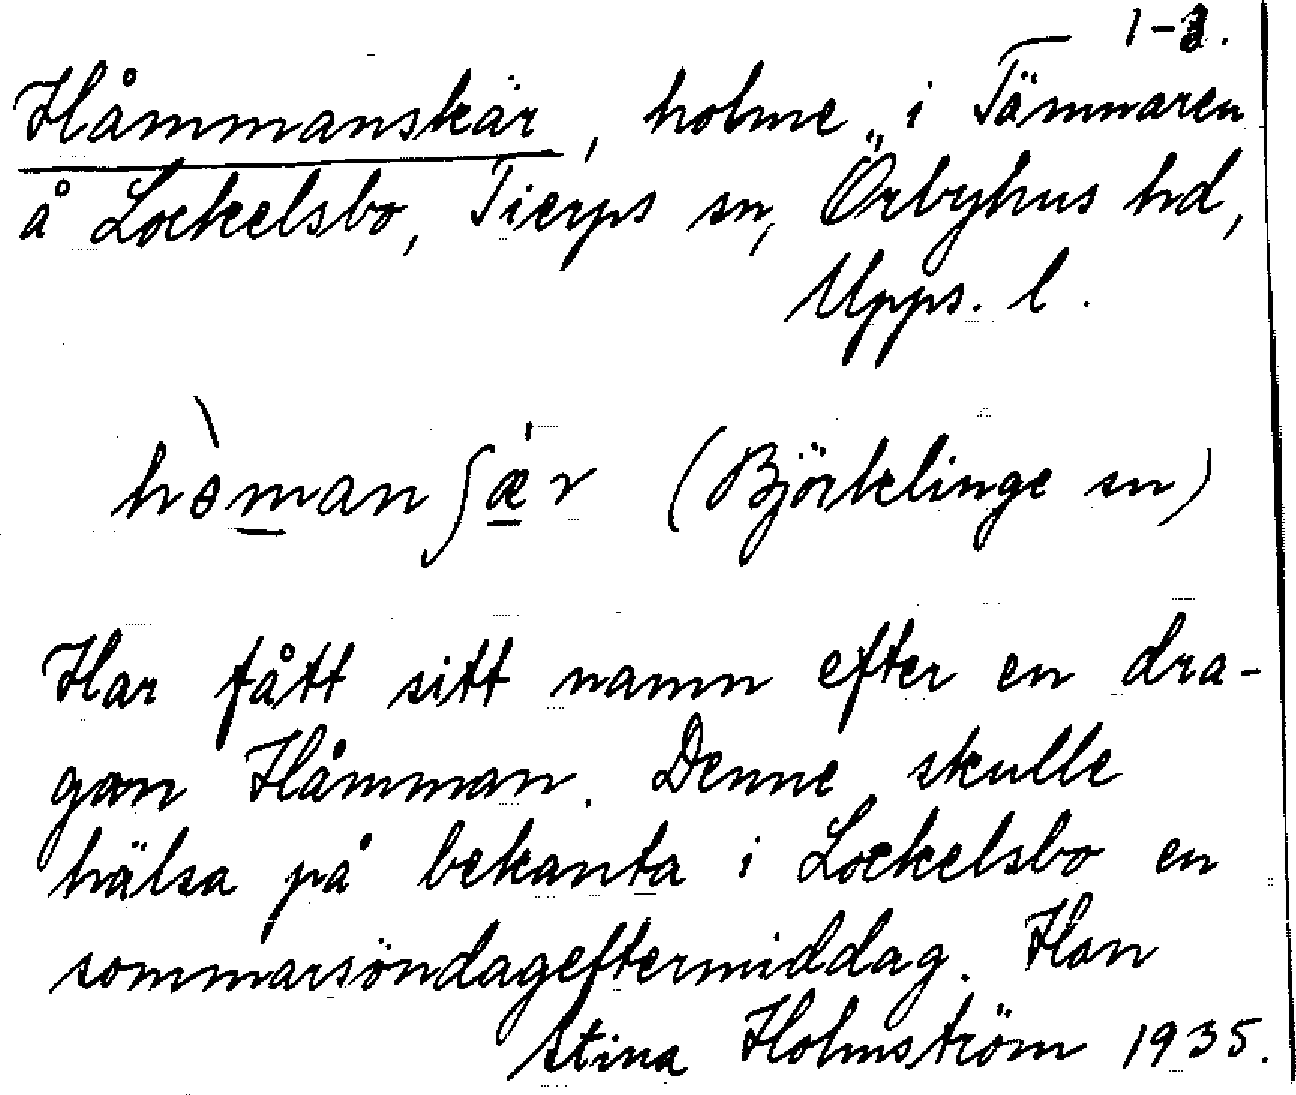 1-3.
Håmmanskär, holme i Tämnaren
å Lockelsbo, Tierps sn, Örbyhus hd,
Upps. l.
hòmanʃǽr (Björklinge sn)
Har fått sitt namn efter en dra-
gon Håmman. Denne skulle
hälsa på bekanta i Lockelsbo en
sommarsöndageftermiddag. Han
Stina Holmström 1935.